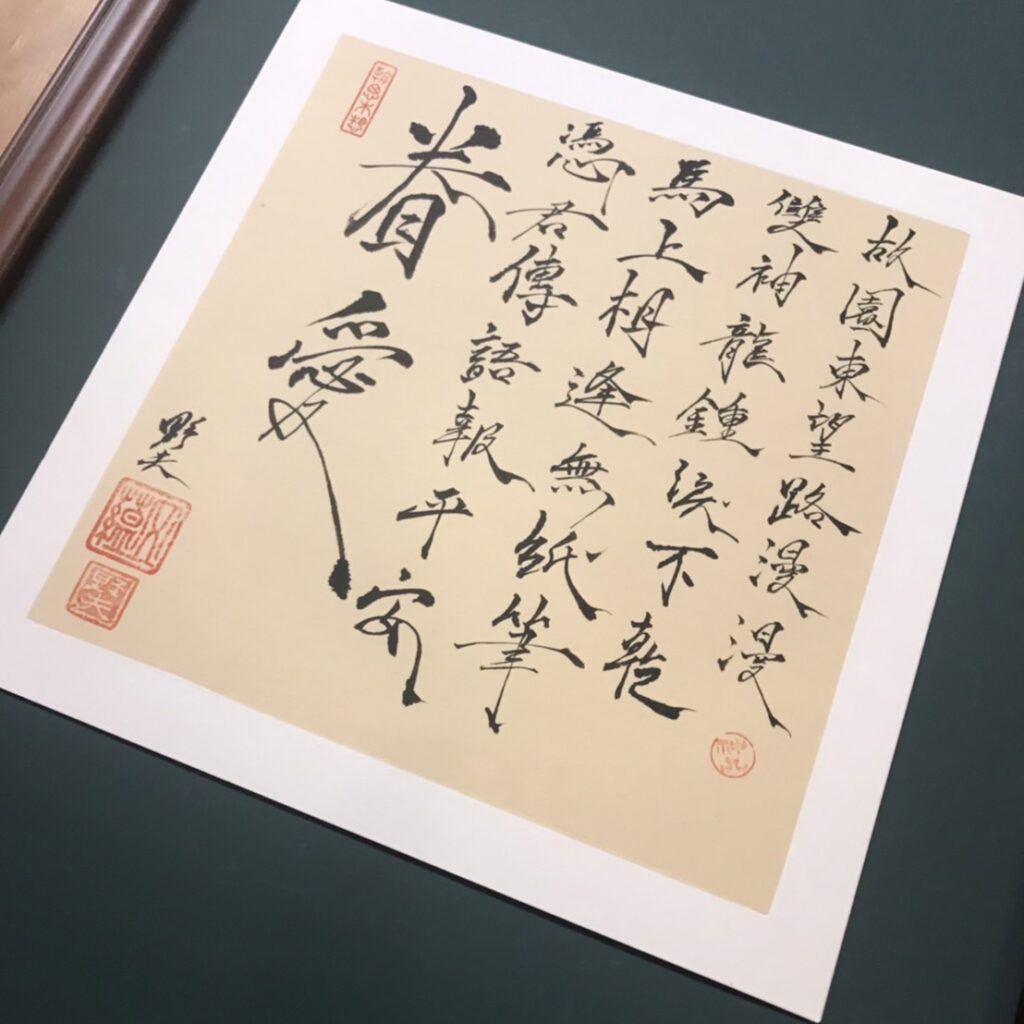 故園東望路漫漫
雙袖龍鍾淚不乾
馬上相逢無紙筆
憑君傳語報平安
眷愛
野夫
野夫